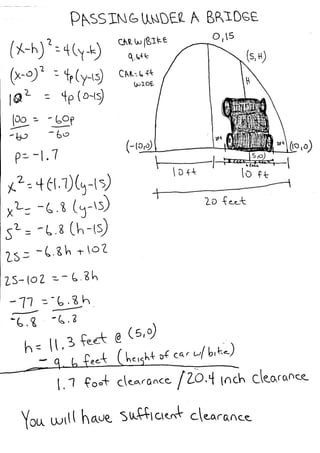 PASSING UNDER A BRIDGE
(x-h)²=4(y-k)
(x-0)² = 4p(y-15)
10² = 4p(0-15)
100 = -60p
-60 -60
p=-1.7
x²=4(-1.7)(y-15)
x²=-6.8(y-15)
5²=-6.8(h-15)
25=-6.8h+102
25-102=-6.8h
-77 = -6.8h
-6.8 -6.8
h= 11.3 feet @ (5,0)
- 9.6 feet (height of car w/bike)
1.7 foot clearance /20.4 inch clearance
You will have sufficient clearance
CAR W/BIKE
9.6ft
CAR: 6ft
WIDE
0,15
(5,H)
H
(-10,0)
(10,0)
(5,0)
10ft
10 ft
20 feet